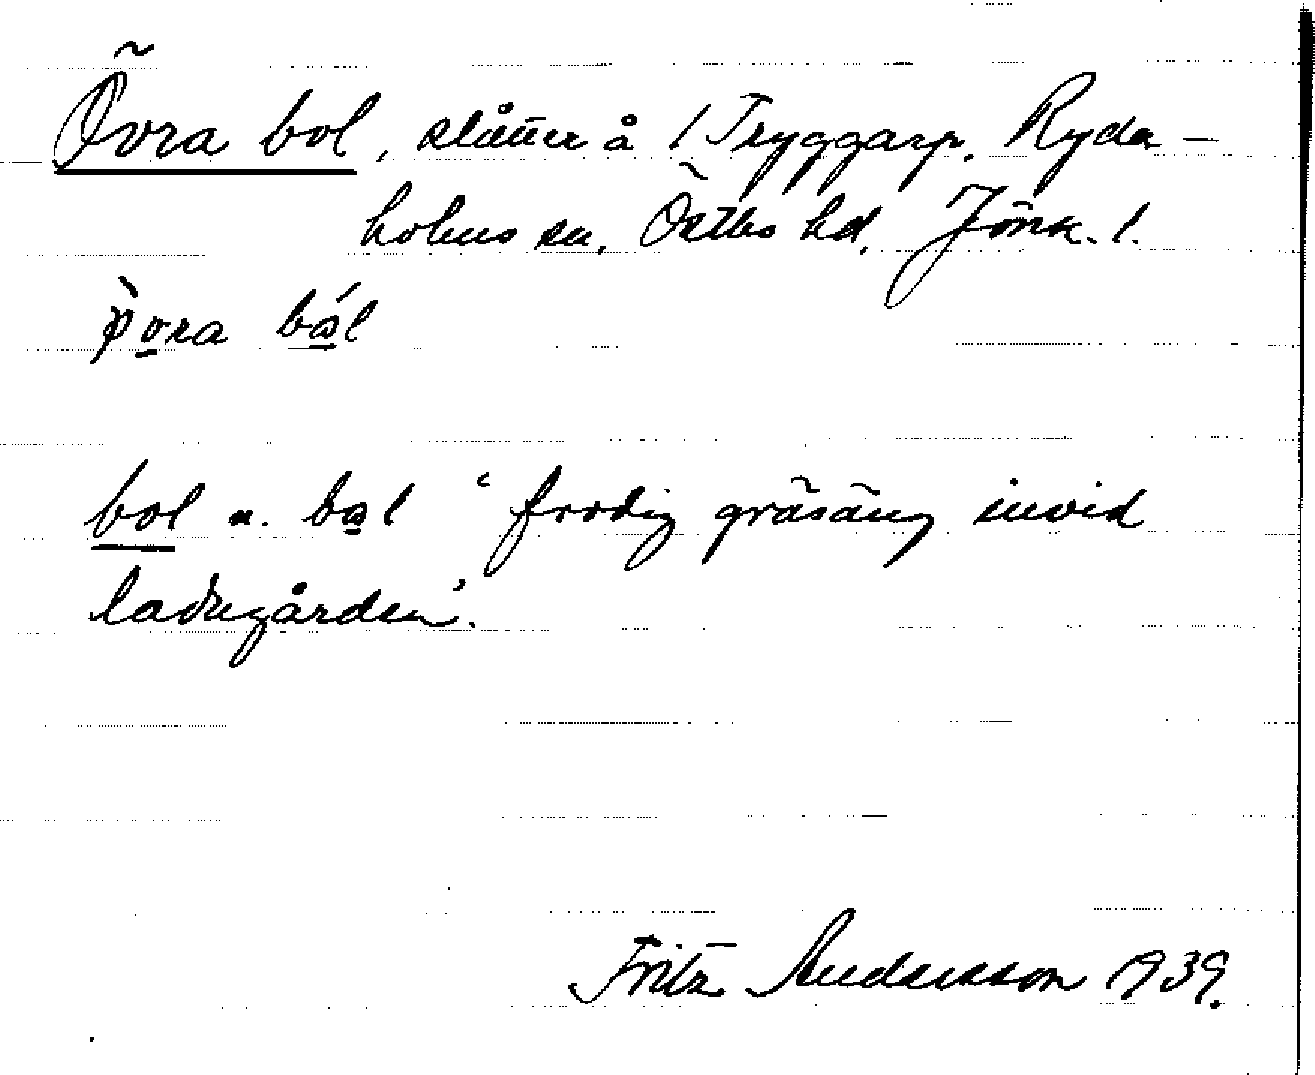 Övra bol, slåtter å 1 Tryggarp, Ryda-
holms sn, Östbo hd, Jönk. l.
bol n. bol ‘frodig gräsäng invid
ladugården’.
Fritz Andersson 1939.